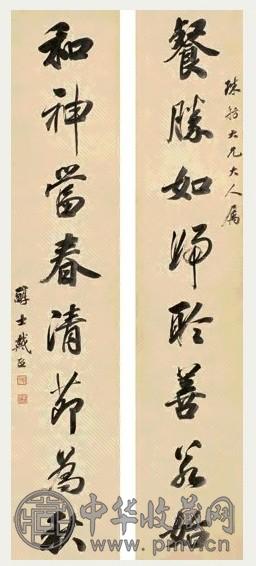 珠舫大兄大人屬
餐勝如歸聆善若始
和神當春清節為秋
醇士戴熙
中华收藏网
www.pmvi.cn